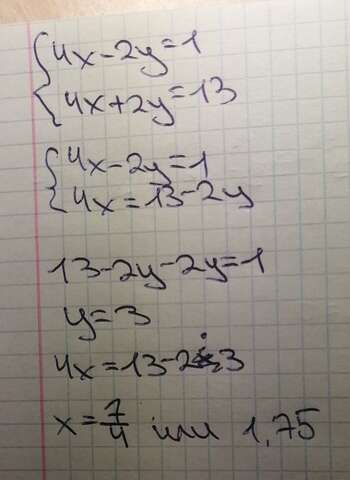 4x-2y=1
4x+2y=13
4x-2y=1
4x=13-2y
13-2y-2y=1
y=3
4x=13-2·3
x=7/4 или 1,75